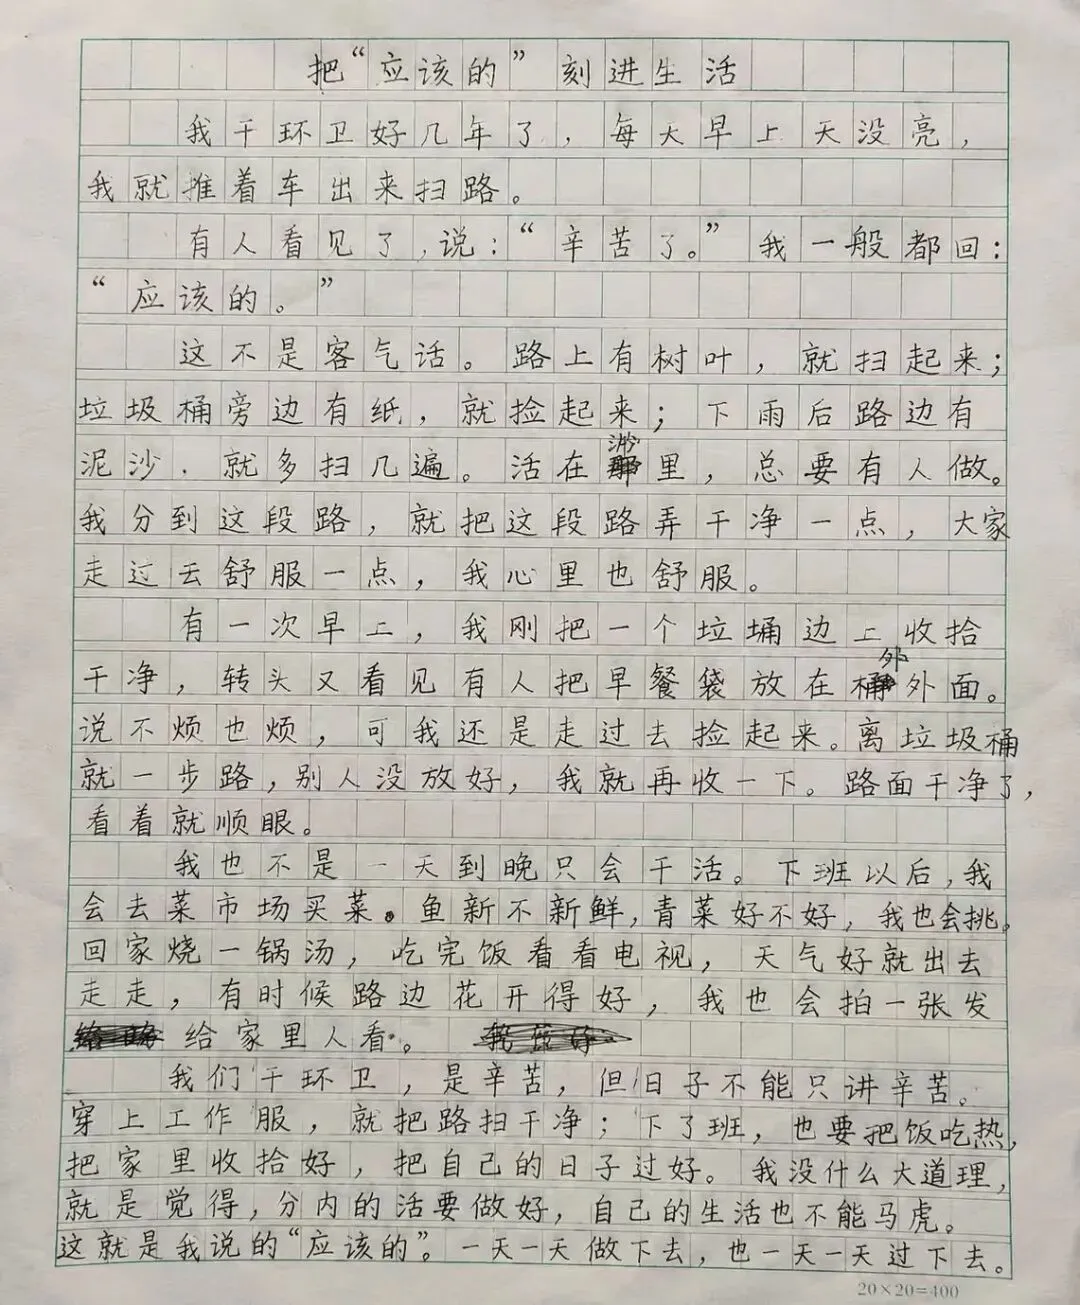 把“应该的”刻进生活
我干环卫好几年了，每天早上天没亮，
我就推着车出来扫路。
有人看见了，说：“辛苦了。”我一般都回：
“应该的。”
这不是客气话。路上有树叶，就扫起来；
垃圾桶旁边有纸，就捡起来；下雨后路边有
泥沙，就多扫几遍。活在那里，总要有人做。
我分到这段路，就把这段路弄干净一点，大家
走过去舒服一点，我心里也舒服。
有一次早上，我刚把一个垃桶边上收拾
干净，转头又看见有人把早餐袋放在外面。
说不烦也烦，可我还是走过去捡起来。离垃圾桶
就一步路，别人没放好，我就再收一下。路面干净了，
看着就顺眼。
我也不是一天到晚只会干活。下班以后，我
会去菜市场买菜。鱼新不新鲜，青菜好不好，我也会挑。
回家烧一锅汤，吃完饭看看电视，天气好就出去
走走，有时候路边花开得好，我也会拍一张发
给家里人看。
我们干环卫，是辛苦，但日子不能只讲辛苦。
穿上工作服，就把路扫干净；下了班，也要把饭吃热，
把家里收拾好，把自己的日子过好。我没什么大道理，
就是觉得，分内的活要做好，自己的生活也不能马虎。
这就是我说的“应该的”。一天一天做下去，也一天一天过下去。
20×20=400